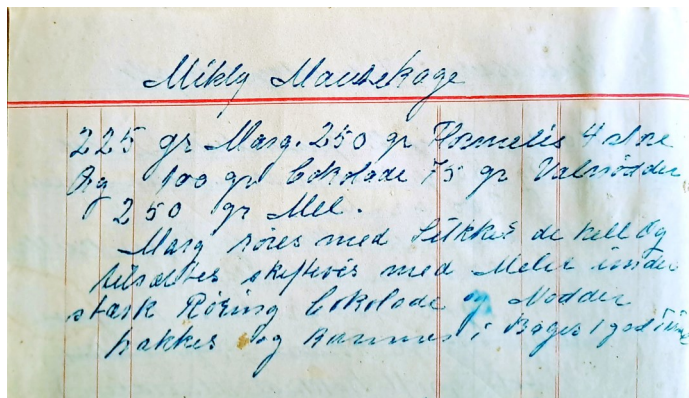 Mikky Mausekage
225 gr Marg. 250 gr Flormelis 4 store
Æg 100 gr Cokolade 75 gr Valnødder
250 gr Mel.
Marg røres med Sukker de hell Æg
tilsættes skiftevis med Melet under
stærk Røring Cokolade og Nødder
hakkes og kommes i Bages 1 god Time